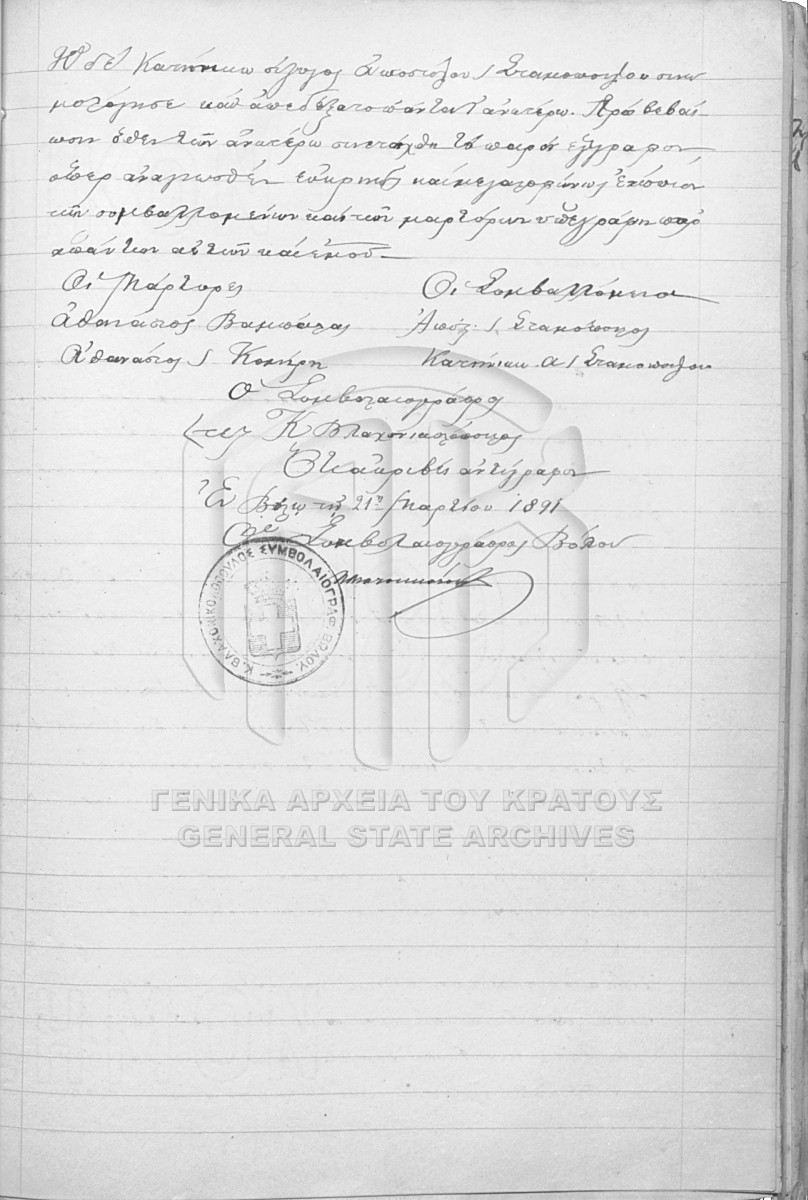 Ἡ δὲ Κατήγκω σύζυγος Ἀποστόλου Ι Σταμοπούλου συνω
μολόγησε καὶ ἀπεδέξατο πάντα τ' ἀνωτέρω. Πρὸς βεβαί-
ωσιν ὅθεν τῶν ἀνωτέρω συνετάχθη τὸ παρὸν ἔγγραφον
ὅπερ ἀναγνωσθὲν εὐκρινῶς καὶ μεγαλοφώνως ἐνώπιον
τῶν συμβαλλομένων καὶ τῶν μαρτύρων ὑπεγράφη παρ'
ἁπάντων αὐτῶν καὶ ἐμοῦ.—
Οἱ Μάρτυρες Οἱ Συμβαλλόμενοι
Ἀθανάσιος Ἀπόστ. Ι. Σταμόπουλος
Ἀθανάσιος Ι Κατήγκω Α Ι Σταμοπούλου
Ὁ Συμβολαιογράφος
Κ Βλαχονικολόπουλος
Ὅτι ἀκριβὲς ἀντίγραφον
Ἐν Βόλῳ τῇ 21ῃ Μαρτίου 1891
Ὁ Συμβολαιογράφος Βόλου
Κ. ΒΛΑΧΟΝΙΚΟΛΟΠΟΥΛΟΣ ΣΥΜΒΟΛΑΙΟΓΡΑΦ. ΒΩΛΟΥ.
ΓΕΝΙΚΑ ΑΡΧΕΙΑ ΤΟΥ ΚΡΑΤΟΥΣ
GENERAL STATE ARCHIVES